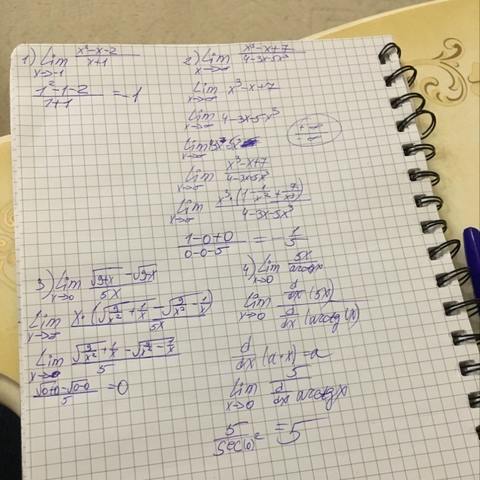 1) Lim x→-1 x²-x-2 / x+1
1²-1-2 / 1+1 = -1
2) Lim x→∞ x³-x+7 / 4-3x-5x³
Lim x→∞ x³-x+7
Lim x→∞ 4-3x-5x³
+∞ / -∞
Lim x→∞ x³-x+7 / 4-3x-5x³
Lim x→∞ x³·(1-1/x²+7/x³) / 4-3x-5x³
1-0+0 / 0-0-5 = 1/5
3) Lim x→0 √9+x - √9-x / 5x
Lim x→∞ x·(√9/x²+1/x - √9/x²-1/x) / 5x
Lim x→0 √9/x²+1/x - √9/x²-1/x / 5
√0+0-√0-0 / 5 = 0
4) Lim x→0 5x / arctgx
Lim x→0 d/dx (5x) / d/dx (arctg(x)
d/dx (a·x) = a
Lim x→0 5 / d/dx arctgx
5 / sec(0)² = 5